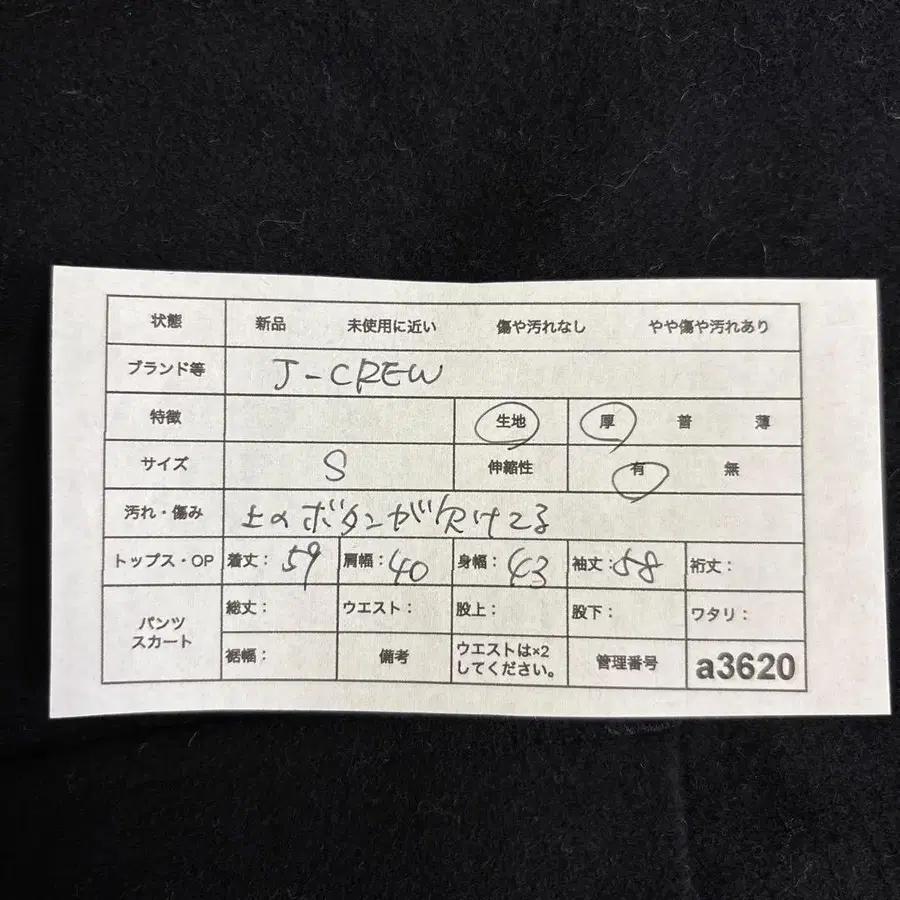 状態 新品 未使用に近い 傷や汚れなし やや傷や汚れあり
ブランド等 J-CREW
特徴 生地 厚 普 薄
サイズ S 伸縮性 有 無
汚れ・傷み 上のボタンが欠けてる
トップス・OP 着丈：59 肩幅：40 身幅：43 袖丈：58 裄丈：
パンツ スカート 総丈： ウエスト： 股上： 股下： ワタリ：
裾幅： 備考 ウエストは×2してください。 管理番号 a3620